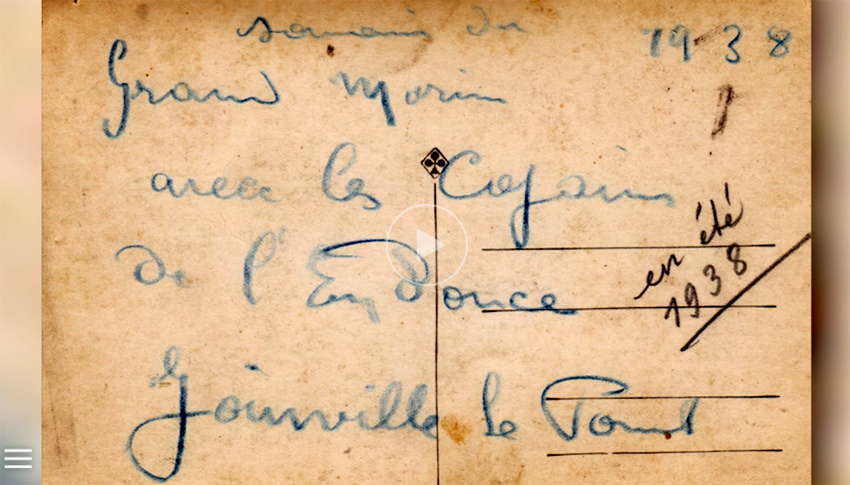 du 1938
Grand Morin
avec les Copains
de l'En Douce
en été
1938
Joinville le Pont